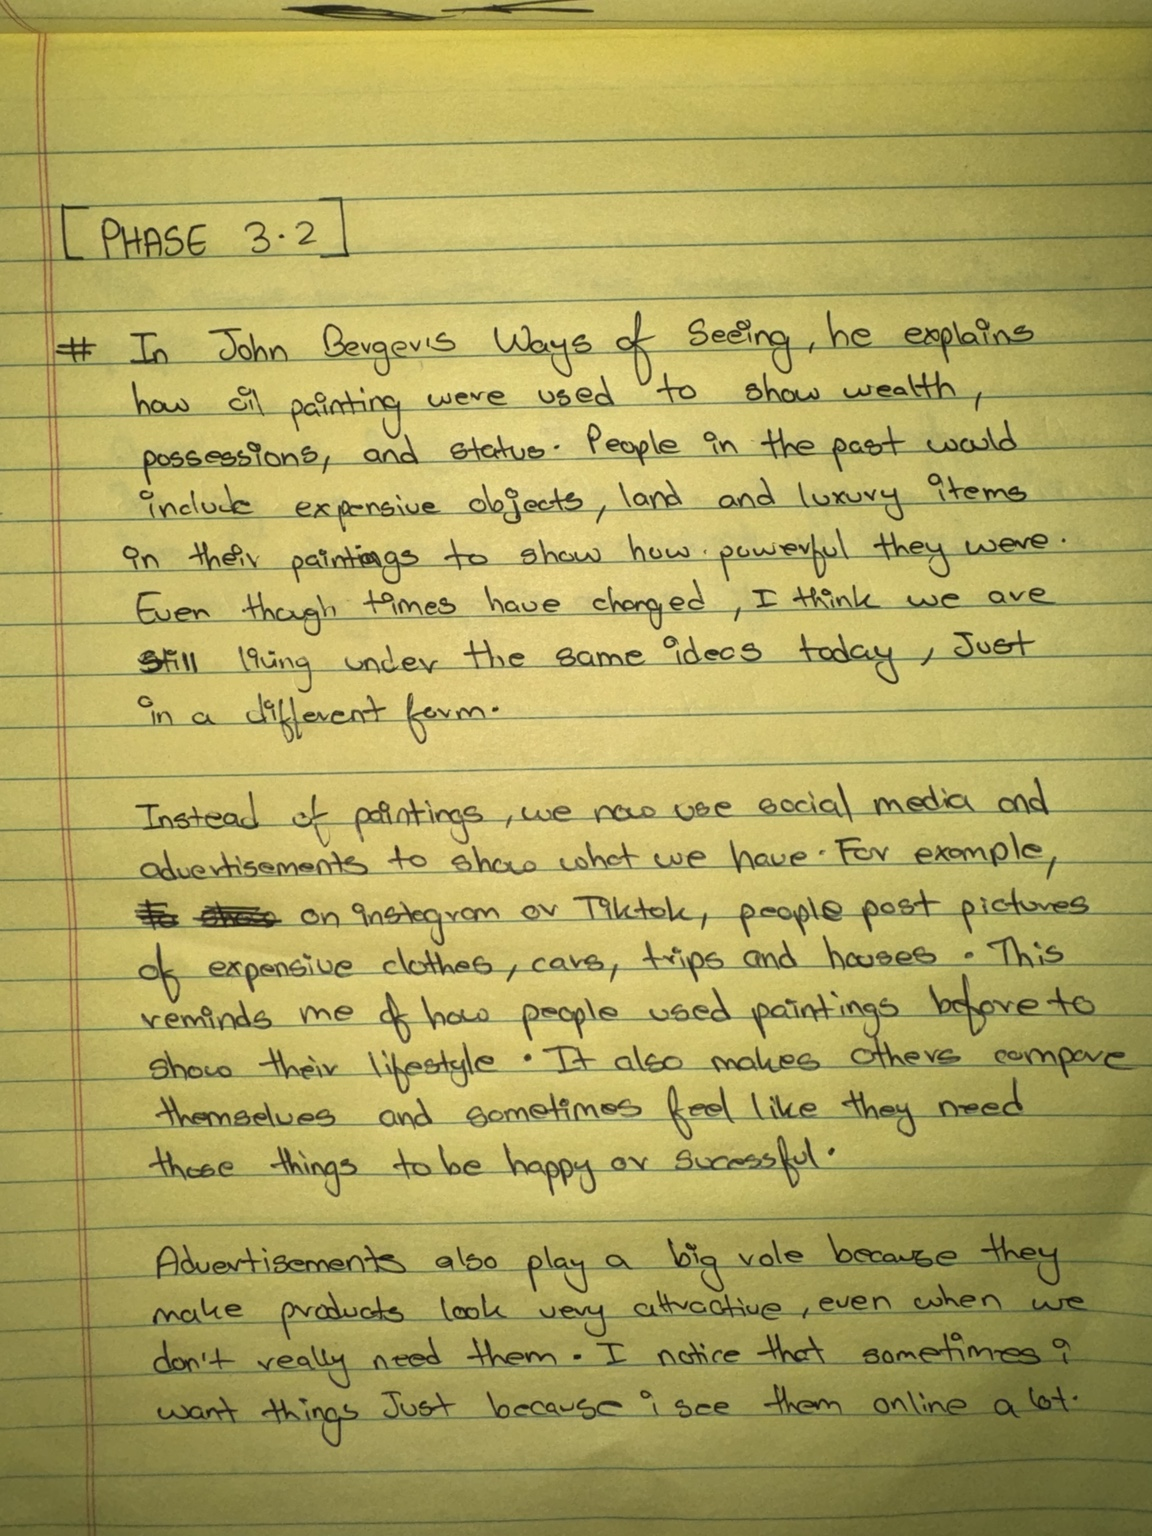 [PHASE 3.2]
# In John Berger's Ways of Seeing, he explains
how oil painting were used to show wealth,
possessions, and status. People in the past would
include expensive objects, land and luxury items
in their paintings to show how powerful they were.
Even though times have changed, I think we are
still living under the same ideas today, Just
in a different form.
Instead of paintings, we now use social media and
advertisements to show what we have. For example,
on instagram or Tiktok, people post pictures
of expensive clothes, cars, trips and houses. This
reminds me of how people used paintings before to
show their lifestyle. It also makes others compare
themselves and sometimes feel like they need
those things to be happy or sucessful.
Advertisements also play a big role because they
make products look very attractive, even when we
don't really need them. I notice that sometimes i
want things Just because i see them online a lot.